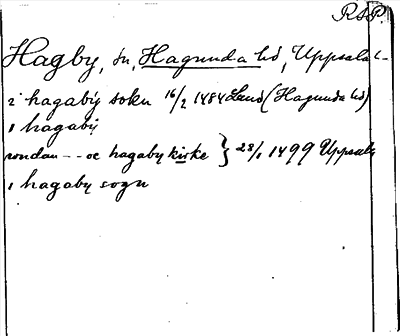 RAP.
Hagby, sn, Hagunda hd, Uppsala l.
i hagabij sokn 16/2 1484 Lund (Hagunda hd)
i hagabij
rondan -- oc hagaby kirke } 28/1 1499 Uppsala
i hagaby sogn